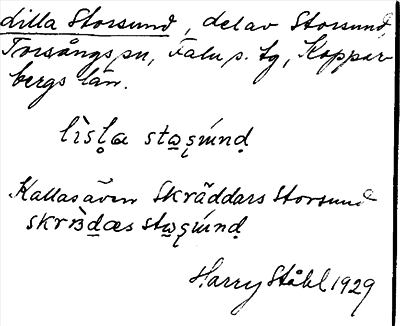 Lilla Storsund, del av Storsund,
Torsångs sn, Falu s. tg, Koppar-
bergs län.
lìsla
Kallas även Skräddars Storsund
Harry Ståhl 1929